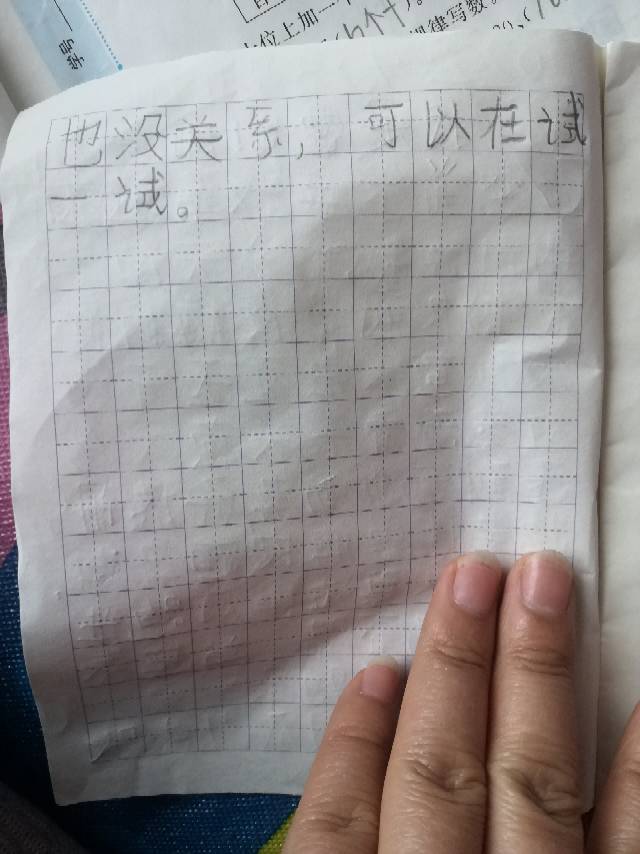 位上加一
个十
律写数。
也没关系，可以在试
一试。